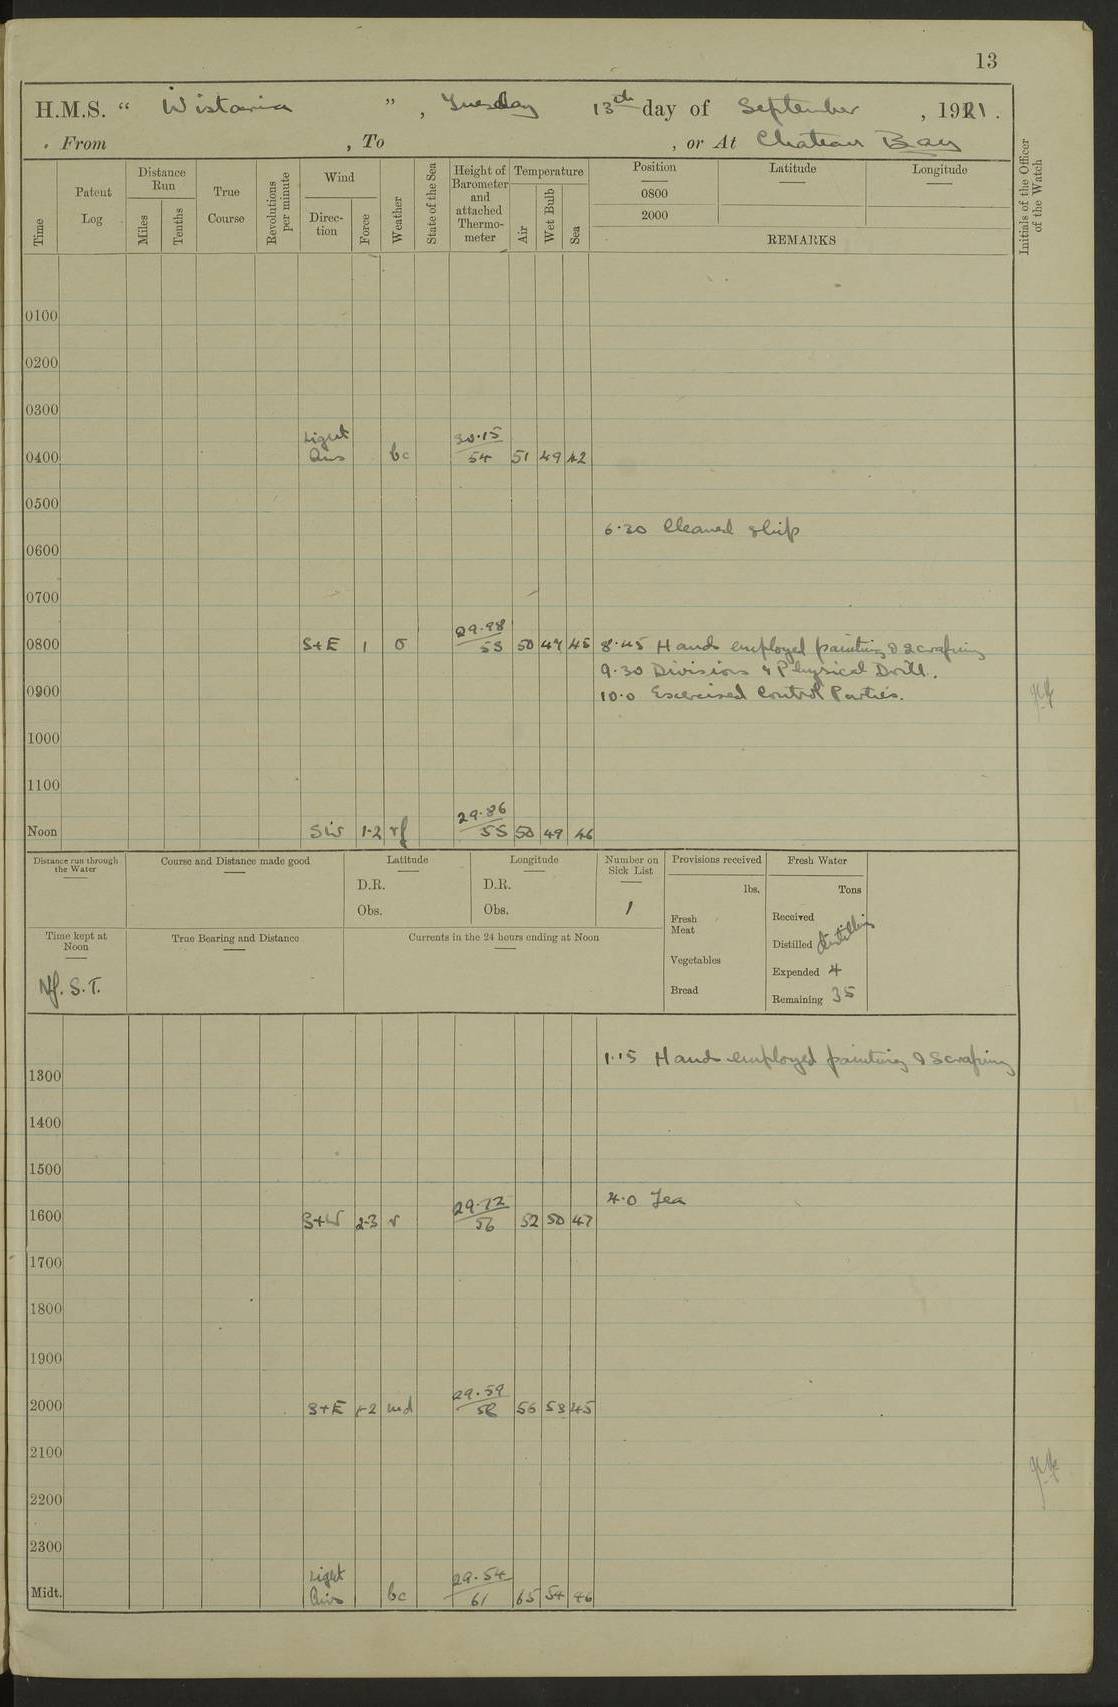 13
H.M.S. “ Wistaria ” , Tuesday 13th day of September , 1921 .
From , To , or At Chateau Bay
Time
Patent Log
Distance Run
Miles
Tenths
True Course
Revolutions per minute
Wind
Direction
Force
Weather
State of the Sea
Height of Barometer and attached Thermometer
Temperature
Air
Wet Bulb
Sea
Position
0800
2000
Latitude
Longitude
REMARKS
Initials of the Officer of the Watch
0100
0200
0300
Light 30.15
0400 Airs bc 54 51 49 42
0500
6.30 Cleaned ship
0600
0700
29.98
0800 S+E 1 o 53 50 47 45 8.45 Hands employed painting & scraping
9.30 Divisions & Physical Drill.
0900 10.0 Exercised Control Parties.
1000
1100
29.86
Noon SW 1-2 rf 55 50 49 46
Distance run through the Water
Course and Distance made good
Latitude
D.R.
Obs.
Longitude
D.R.
Obs.
Number on Sick List
1
Provisions received
lbs.
Fresh Meat
Vegetables
Bread
Fresh Water
Tons
Received
Distilled distilling
Expended 4
Remaining 35
Time kept at Noon
Nf. S.T.
True Bearing and Distance
Currents in the 24 hours ending at Noon
1.15 Hands employed painting & Scraping
1300
1400
1500
4.0 Tea
29.72
1600 S+W 2-3 r 56 52 50 47
1700
1800
1900
29.59
2000 S+E 1-2 md 58 56 53 45
2100
2200
2300
Light 29.54
Midt. Airs bc 61 65 54 46